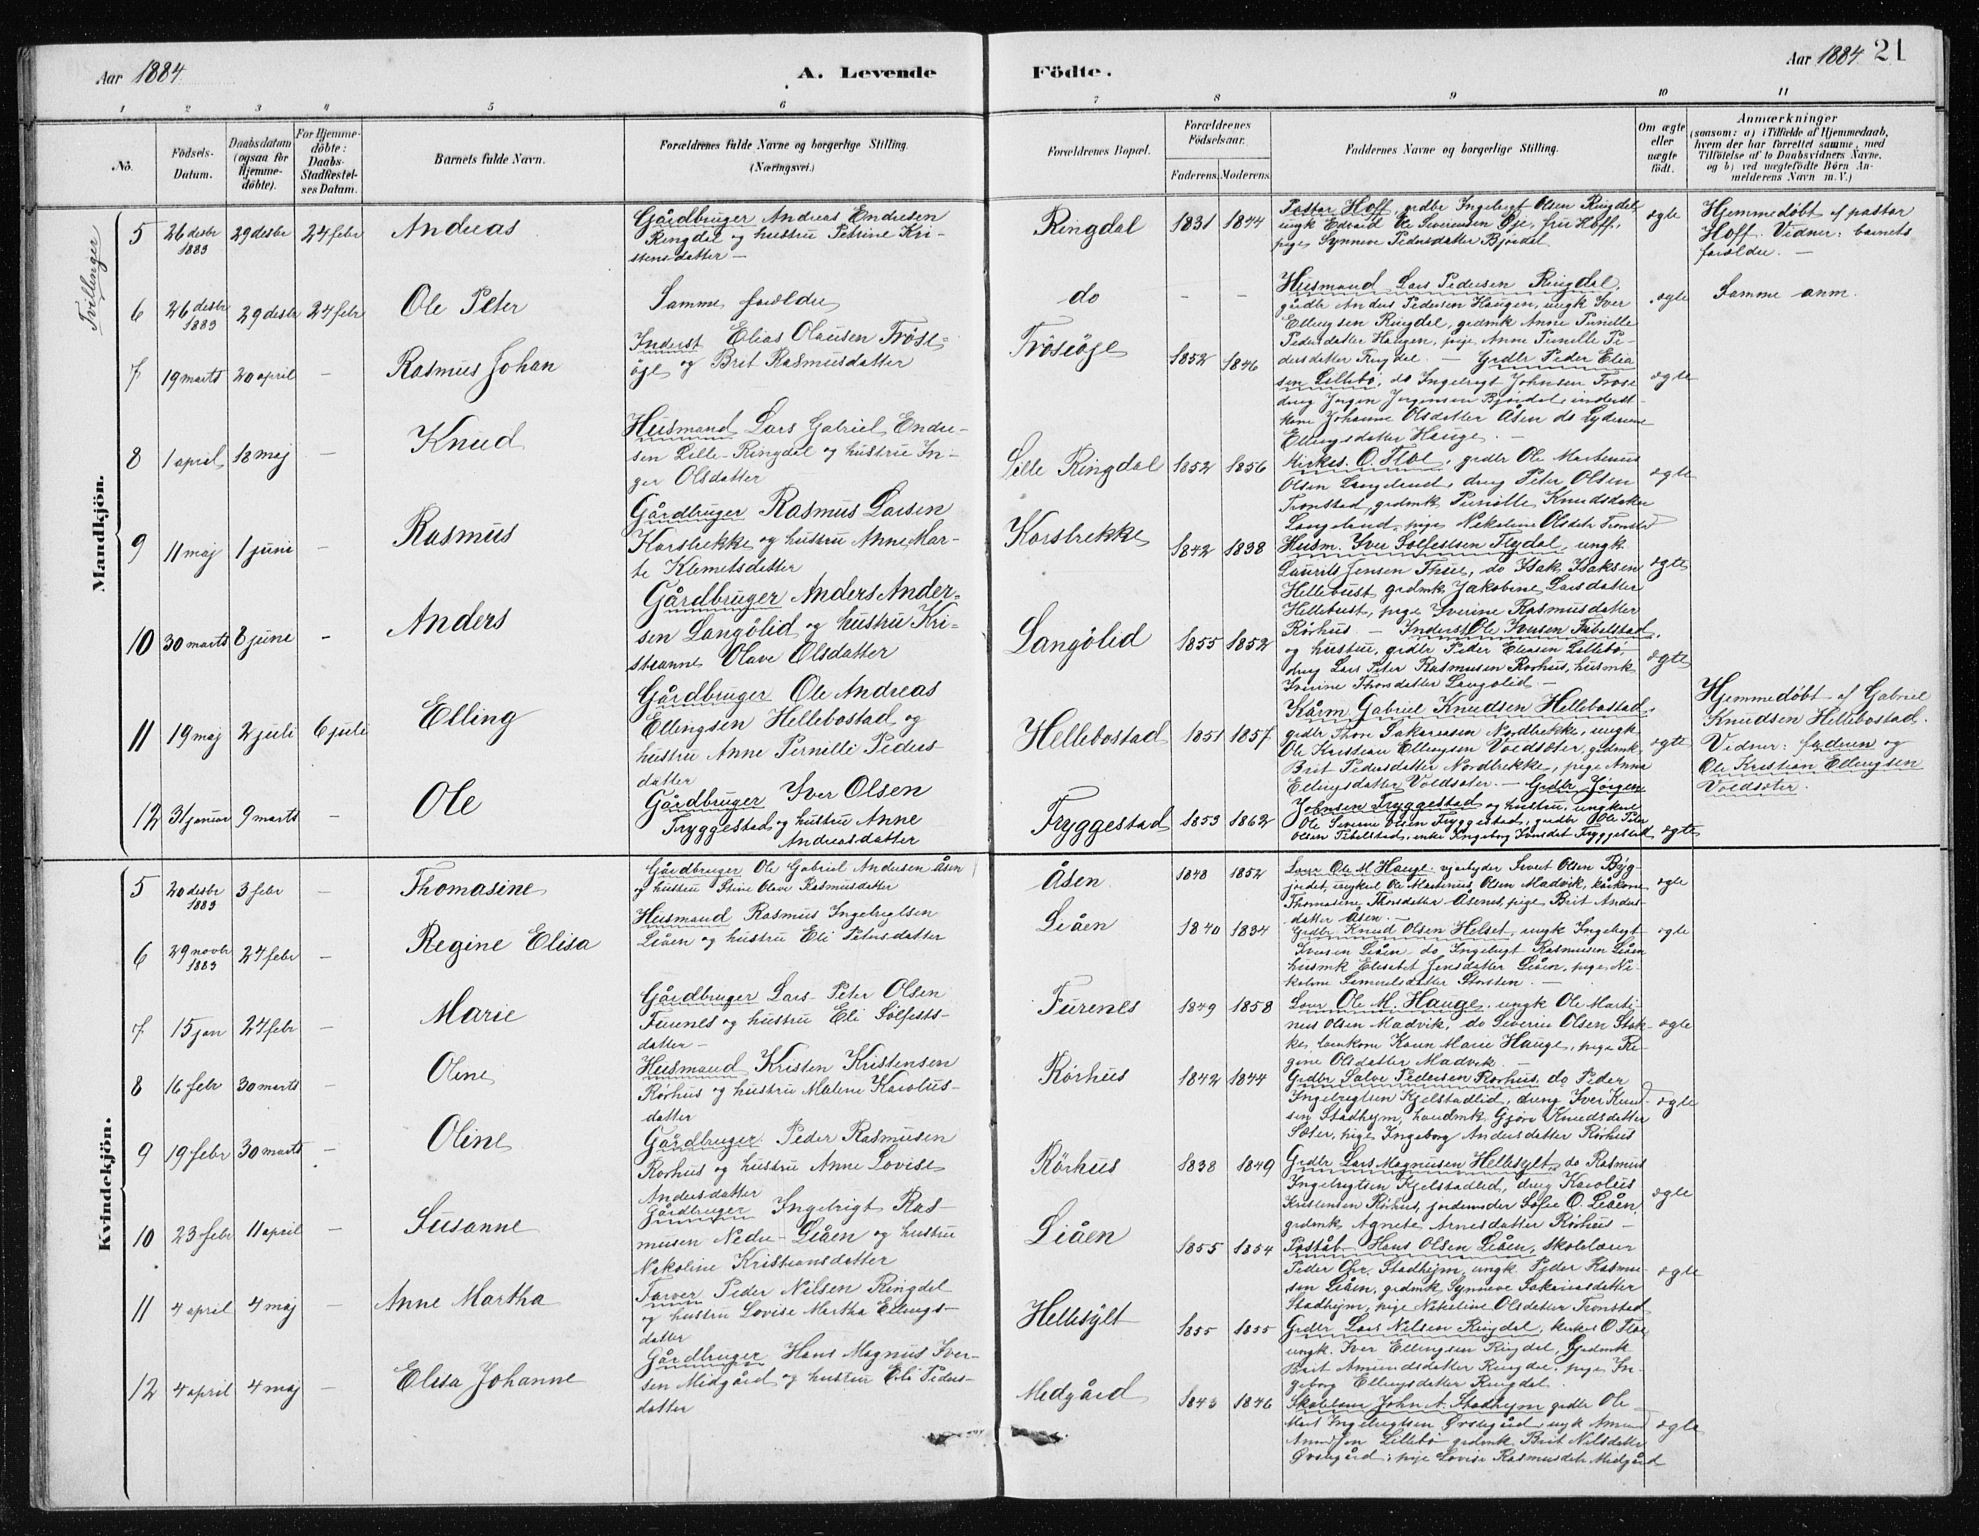 Aar 1884
A. Levende
Födte.
Aar 1884
21
1 2 3 4 5 6 7 8 9 10 11
No.
Födsels-
Datum.
Daabsdatum
(ogsaa for
Hjemme-
döbte).
For Hjemme-
döbte:
Daabs-
Stadfæstel-
ses Datum.
Barnets fulde Navn.
Forældrenes fulde Navne og borgerlige Stilling.
(Næringsvei.)
Forældrenes Bopæl.
Forældrenes
Födselsaar.
Faderens. Moderens.
Faddernes Navne og borgerlige Stilling.
Om ægte
eller
uægte
födt.
Anmærkninger
(saasom: a) i Tilfælde af Hjemmedaab,
hvem der har forrettet samme, med
Tilföielse af to Daabsvidners Navne,
og b) ved uægtefödte Börn An-
melderens Navn m. V.)
Mandkjön.
Tvillinger
5 26 desbr 1883 29 desbr 24 febr Andreas
Gårdbruger Andreas Endresen
Ringdal og hustru Petrine Kri-
stensdatter —
Ringdal 1831 1844
Pastor Hoff, grdbr Ingebrigt Olsen Ringdal,
ungk Edvard Ole Severinsen Øje, fru Hoff,
pige Synneve Pedersdatter Bjørdal
ægte
Hjemmedøbt af pastor
Hoff. Vidner: barnets
forældre. —
6 26 desbr 1883 29 desbr 24 febr Ole Peter
Samme forældre
do - -
Husmand Lars Pedersen Ringdal,
gårdbr Anders Pedersen Haugen, ungk Iver
Ellingsen Ringdal, grdmk Anne Pernille
Pedersdatter Haugen, pige Anne Pernille Pe-
dersdatter Ringdal. —
ægte
Samme anm.
7 19 marts 20 april - Rasmus Johan
Inderst Elias Olausen Trøse-
øje og Brit Rasmusdatter
Trøseøje 1852 1846
Grdbr Peder Elia-
sen Lillebø, do Ingebrigt Johnsen Trøse
dreng Jørgen Jørgensen Bjørdal, inderst-
kone Johanne Olsdatter Åsen do Lyderine
Ellingsdatter Hauge. —
ægte
8 1 april 18 maj - Knud
Husmand Lars Gabriel Endre-
sen Lille-Ringdal og hustru In-
ger Olsdatter
Lille Ringdal 1852 1856
Kirkes. O. Floe, grdbr Ole Martinus
Olsen Langeland, dreng Peter Olsen
Tronstad, grdmk Pernille Knudsdatter
Langeland, pige Nikoline Olsdatr Tronstad
ægte
9 11 maj 1 juni - Rasmus
Gårdbruger Rasmus Larsen
Korsbrekke og hustru Anne Mar-
te Klemetsdatter
Korsbrekke 1842 1838
Husm. Iver Solfestsen Flydal, ungk
Laurits Jensen Thue, do Isak Isaksen
Hellebust grdmk Jakobine Larsdatter
Hellebust, pige Severine Rasmusdatter
Rørhus —
ægte
10 30 marts 8 juni - Anders
Gårdbruger Anders Ander-
sen Langølid og hustru Kri-
stianne Olave Olsdatter
Langølid 1855 1852
Inderst Ole Iversen Tibelstad,
og hustru, grdbr Peder Eliasen Lillebø,
dreng Lars Peter Rasmusen Rørhus, husmk
Severine Thorsdatter Langølid —
ægte
11 19 maj 2 juli 6 juli Elling
Gårdbruger Ole Andreas
Ellingsen Hellebostad og
hustru Anne Pernille Peders-
datter
Hellebostad 1851 1857
Kårm Gabriel Knudsen Hellebostad,
grdbr Thore Sakariasen Nordbrekke, ungk
Ole Kristian Ellingsen Voldsæter, grdmk
Brit Pedersdatter Nordbrekke, pige Anna
Ellingsdatter Voldsæter. —
ægte
Hjemmedøbt af Gabriel
Knudsen Hellebostad.
Vidner: faderen og
Ole Kristian Ellingsen
Voldsæter.
12 31 januar 9 marts - Ole
Gårdbruger Iver Olsen
Tryggestad og hustru Anne
Andreasdatter
Tryggestad 1853 1862
Grdbr Jørgen
Johnsen Tryggestad og hustru, ungkarl
Ole Severin Olsen Tryggestad, grdbr Ole Peter
Olsen Tibelstad, enke Ingeborg Iversdat Tryggestad
ægte
Kvindekjön.
5 20 desbr 1883 3 febr - Thomasine
Gårdbruger Ole Gabriel Andersen Åsen
og hustru Stine Olave Rasmusdatter
Åsen 1848 1852
Lærer Ole M. Hauge, vejarbejder Sivert Olsen Byg-
jordet, ungkarl Ole Martinus Olsen Madvik, kårkone
Thomasine Thorsdatter Åsenes, pige Brit Anders-
datter Åsen. —
ægte
6 29 novbr 1883 24 febr - Regine Elisa
Husmand Rasmus Ingebrigtsen
Liåen og hustru Eli Petersdatter
Liåen 1840 1834
Grdbr Knud Olsen Helset, ungk Ingebrigt
Iversen Liåen, do Ingebrigt Rasmusen Liåen
husmk Elisabet Jensdatter Liåen, pige Ni-
koline Samuelsdatter Storsten. —
ægte
7 15 jan 24 febr - Marie
Gårdbruger Lars Peter Olsen
Furenes og hustru Eli Solfests-
datter —
Furenes 1849 1858
Lærer Ole M. Hauge, ungk Ole Marti-
nus Olsen Madvik, do Severin Olsen Stok-
ke, lærerkone Karen Marie Hauge, pige Re-
gine Olsdatter Madvik —
ægte
8 16 febr 30 marts - Oline
Husmand Kristen Kristensen
Rørhus og hustru Malene Karolus-
datter
Rørhus 1842 1844
Grdbr Salve Pedersen Rørhus, do Peder
Ingebrigtsen Kjelstadlid, dreng Iver Knud-
sen Stadhejm, handmk Gjøre Knudsdatter
Sæter, pige Ingeborg Andersdatter Rørhus
ægte
9 19 febr 30 marts - Oline
Gårdbruger Peder Rasmusen
Rørhus og hustru Anne Lovise
Andersdatter
Rørhus 1838 1849
Grdbr Lars Magnusen Hellesylt, do Rasmus
Ingebrigtsen Kjelstadlid, dreng Karolus
Kristensen Rørhus, jordemoder Sofie O. Liåen,
grdmk Agnete Arnesdatter Rørhus —
ægte
10 23 febr 11 april - Susanne
Gårdbruger Ingebrigt Ras-
musen Nedre-Liåen og hustru
Nikoline Kristiansdatter
Liåen 1855 1854
Poståb. Hans Olsen Liåen, skolelærer
Peder Chr. Stadhejm, ungk Peder Rasmu-
sen Liåen, grdmk Synneve Sakariasdatter
Stadhejm, pige Nikoline Olsdatter Tronstad
ægte
11 4 april 4 maj - Anne Martha
Farver Peder Nilsen Ringdal
og hustru Lovise Martha Ellings-
datter
Hellesylt 1855 1855
Grdbr Lars Nilsen Ringdal, kirkes O Floe,
ungk. Iver Ellingsen Ringdal, Grdmk
Brit Amundsdatter Ringdal, pige In-
geborg Ellingsdatter Ringdal.
12 4 april 4 maj - Elisa Johanne
Gårdbruger Hans Magnus Iver-
sen Midgård og hustru Eli Peders-
datter
Midgård 1843 1846
Skolelærer John A. Stadhejm grdbr Ole
Mart Ingebrigtsen Ørstegård, ungk Amund
Lillebø grdmk Brit Nilsdatter
Ørstegård, pige Lovise Rasmusdatr Midgård
ægte